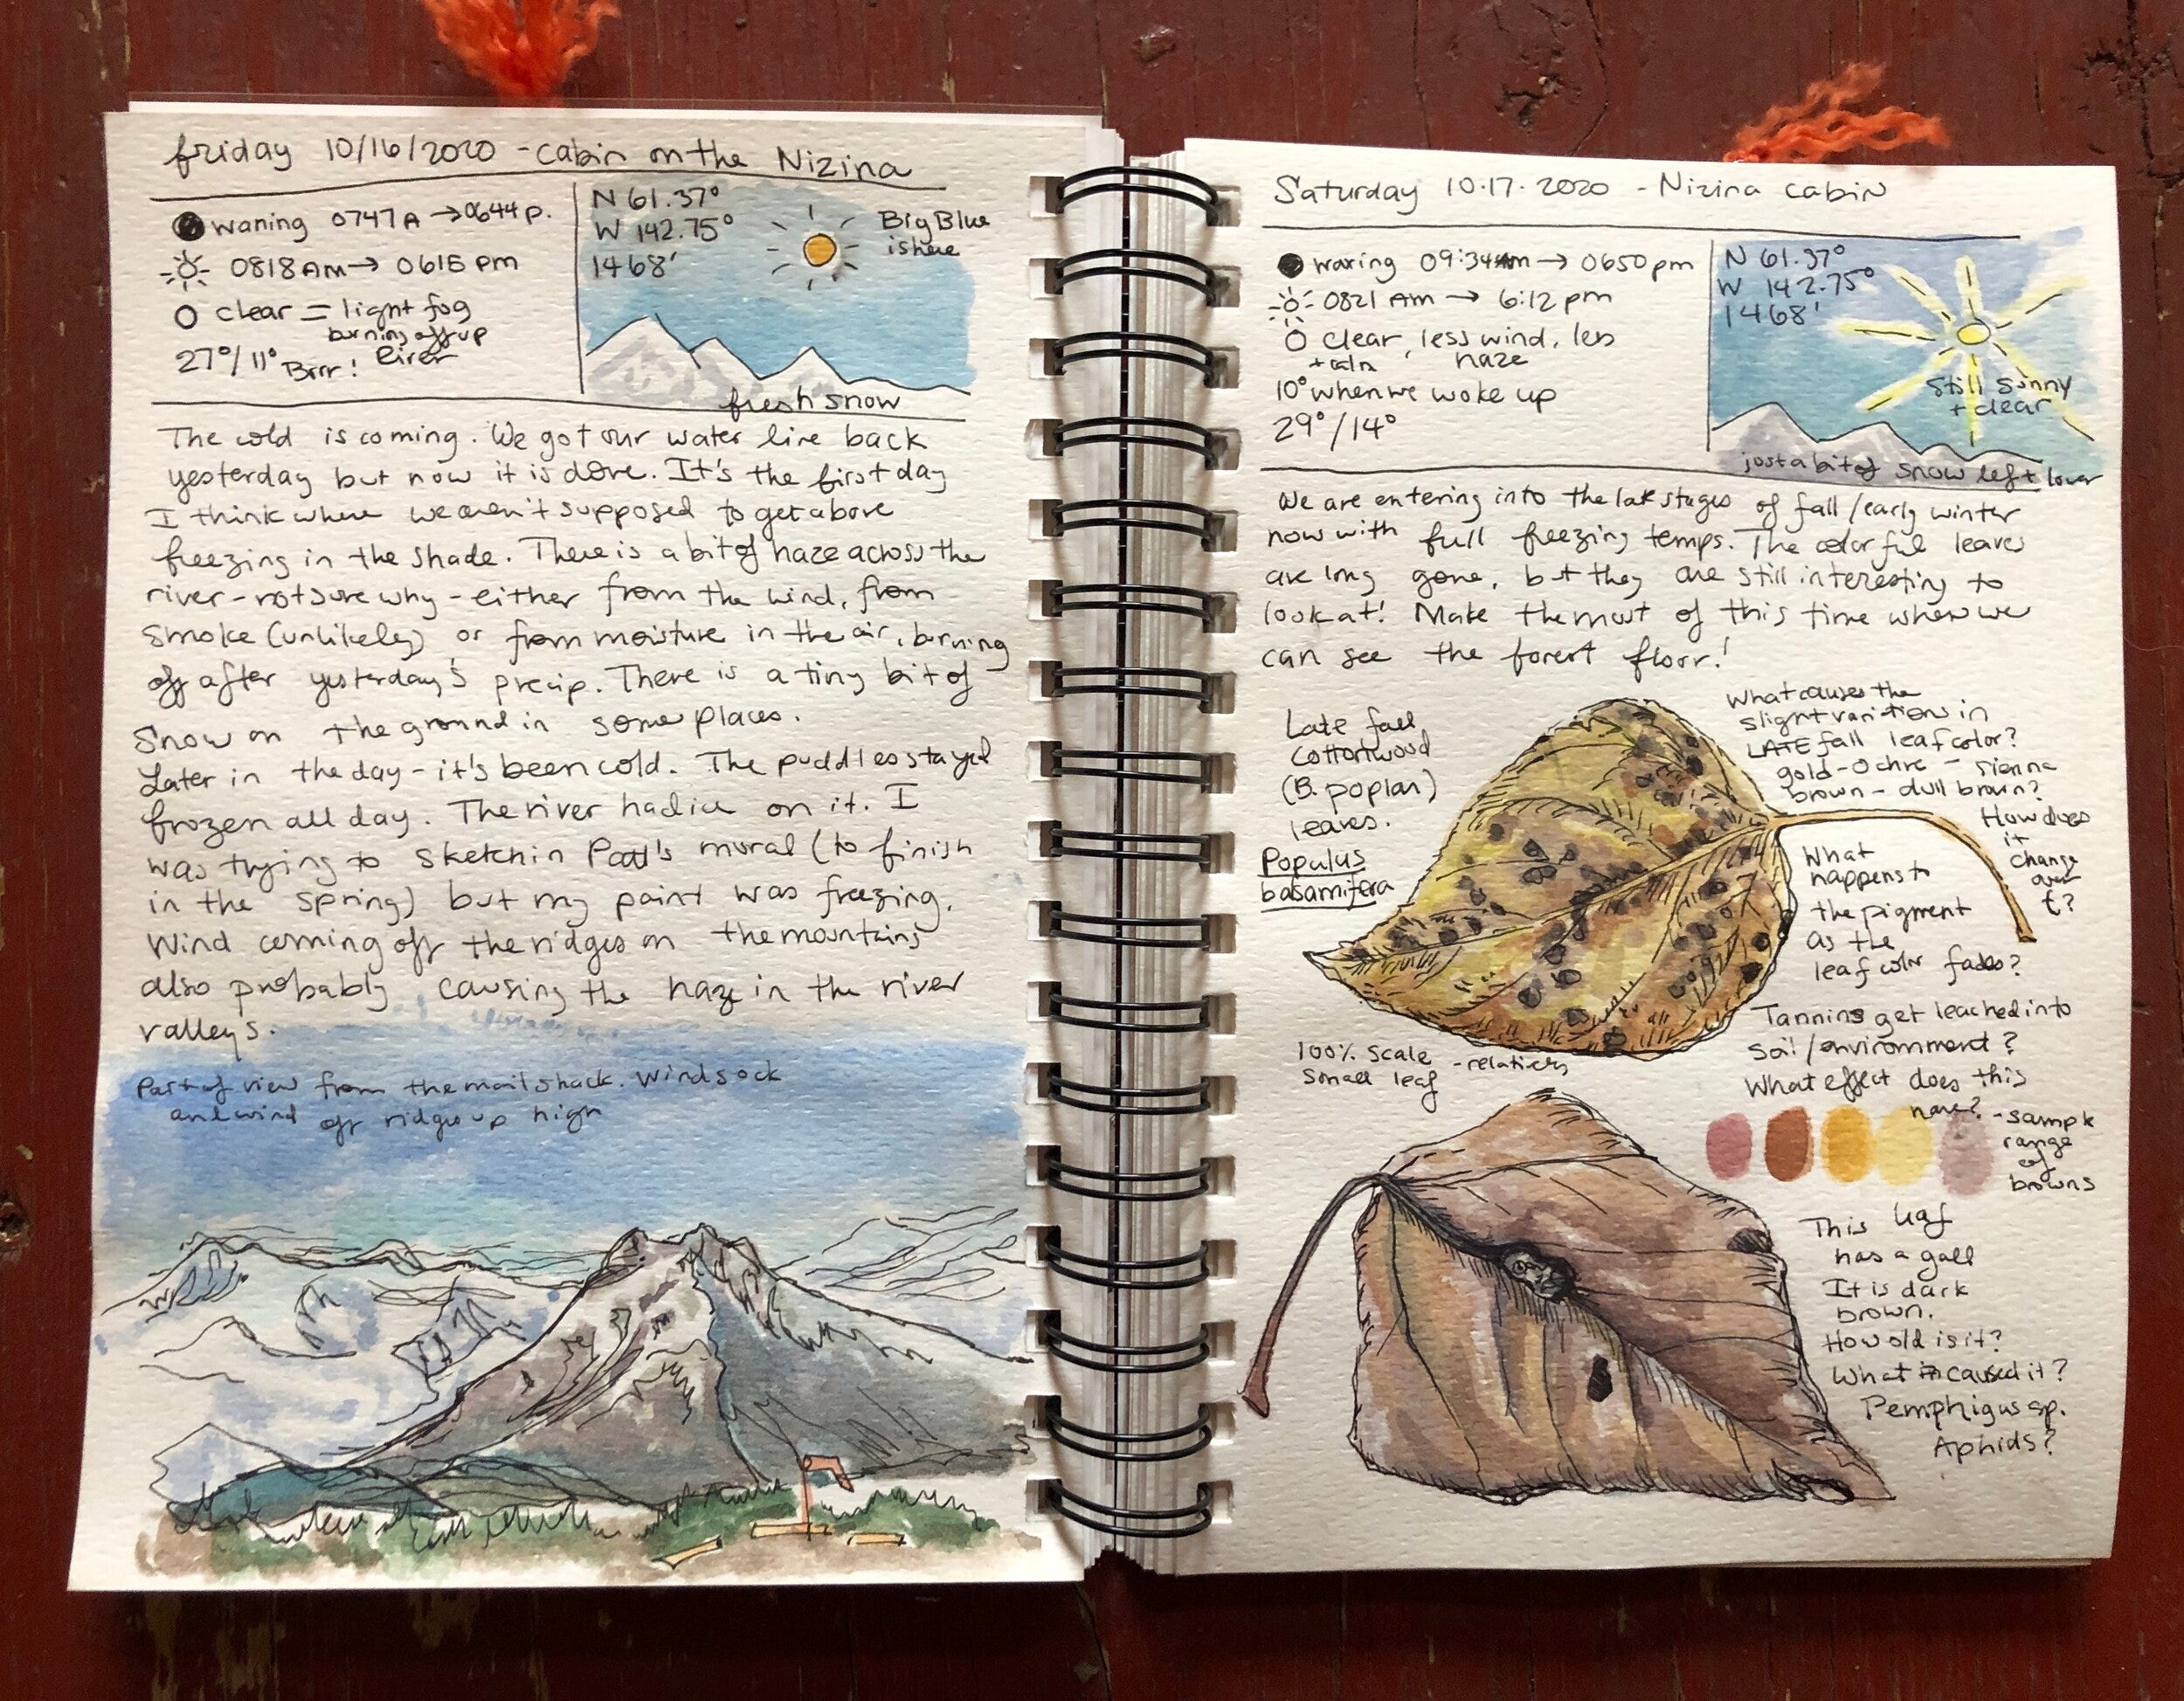 friday 10/16/2020 - cabin on the Nizina
waning 0747A → 0644p.
0818 AM → 0615 pm
clear = light fog
burning off up
River
27°/11° Brrr!
N 61.37°
W 142.75°
1468'
Big Blue
is here
fresh snow
The cold is coming. We got our water line back
yesterday but now it is done. It's the first day
I think where we aren't supposed to get above
freezing in the shade. There is a bit of haze across the
river - not sure why - either from the wind, from
smoke (unlikely) or from moisture in the air, burning
off after yesterday's precip. There is a tiny bit of
snow on the ground in some places.
Later in the day - it's been cold. The puddles stayed
frozen all day. The river had ice on it. I
was trying to sketch in Patt's mural (to finish
in the spring) but my paint was freezing.
Wind coming off the ridges on the mountains
also probably causing the haze in the river
valleys.
Part of view from the mail shack. Windsock
and wind off ridges up high
Saturday 10.17.2020 - Nizina cabin
waxing 09:34 Am → 0650 pm
0821 AM → 6:12 pm
clear, less wind, less
+ calm haze
10° when we woke up
29°/14°
N 61.37°
W 142.75°
1468'
Still Sunny
+ clear
just a bit of snow left + lower
We are entering into the late stages of fall/early winter
now with full freezing temps. The colorful leaves
are long gone, but they are still interesting to
look at! Make the most of this time when we
can see the forest floor!
Late fall
Cottonwood
(B. poplar)
leaves.
Populus
balsamifera
What causes the
slight variation in
LATE fall leaf color?
gold - Ochre - sienna
brown - dull brown?
How does
it
change
over
t?
What
happens to
the pigment
as the
leaf color fades?
Tannins get leached into
soil/environment?
What effect does this
have?
100% Scale - relatively
small leaf
- sample
range
of
browns
This leaf
has a gall
It is dark
brown.
How old is it?
What caused it?
Pemphigus sp.
Aphids?